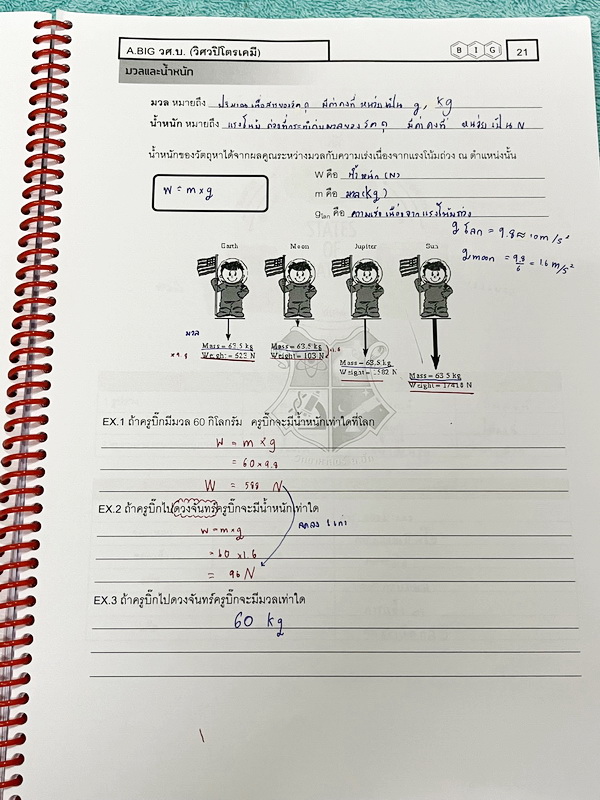 A.BIG วศ.บ. (วิศวปิโตรเคมี) B I G 21
มวลและน้ำหนัก
มวล หมายถึง ปริมาณเนื้อสารของวัตถุ มีค่าคงที่ หน่วยเป็น g, kg
น้ำหนัก หมายถึง แรงโน้มถ่วงที่กระทำกับมวลของวัตถุ มีค่าคงที่ หน่วยเป็น N
น้ำหนักของวัตถุหาได้จากผลคูณระหว่างมวลกับความเร่งเนื่องจากแรงโน้มถ่วง ณ ตำแหน่งนั้น
W = m × g
W คือ น้ำหนัก (N)
m คือ มวล (kg)
gโลก คือ ความเร่งเนื่องจากแรงโน้มถ่วง
g โลก = 9.8 ≈ 10 m/s²
g moon = 9.8/6 = 1.6 m/s²
Earth Moon Jupiter Sun
มวล
Mass = 63.5 kg Mass = 63.5 kg Mass = 63.5 kg Mass = 63.5 kg
×9.8 Weight = 623 N Weight = 103 N ×1.6 Weight = 1582 N Weight = 17410 N
EX.1 ถ้าครูบิ๊กมีมวล 60 กิโลกรัม ครูบิ๊กจะมีน้ำหนักเท่าใดที่โลก
W = m × g
= 60 × 9.8
W = 588 N
EX.2 ถ้าครูบิ๊กไปดวงจันทร์ครูบิ๊กจะมีน้ำหนักเท่าใด
W = m × g
= 60 × 1.6
= 96 N
EX.3 ถ้าครูบิ๊กไปดวงจันทร์ครูบิ๊กจะมีมวลเท่าใด
60 kg